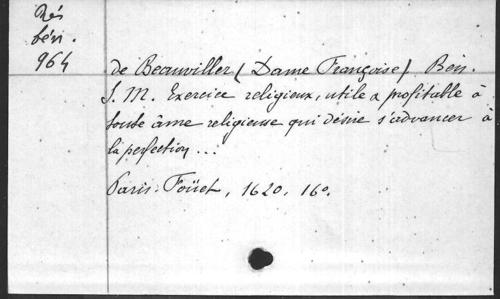 Rés
béri.
964
de Beauviller (Dame Françoise) Ben.
J. M. Exercice religieux, utile & profitable à
toute âme religieuse qui désire s'advancer à
la perfection ...
Paris. Foüet, 1620, 16º.